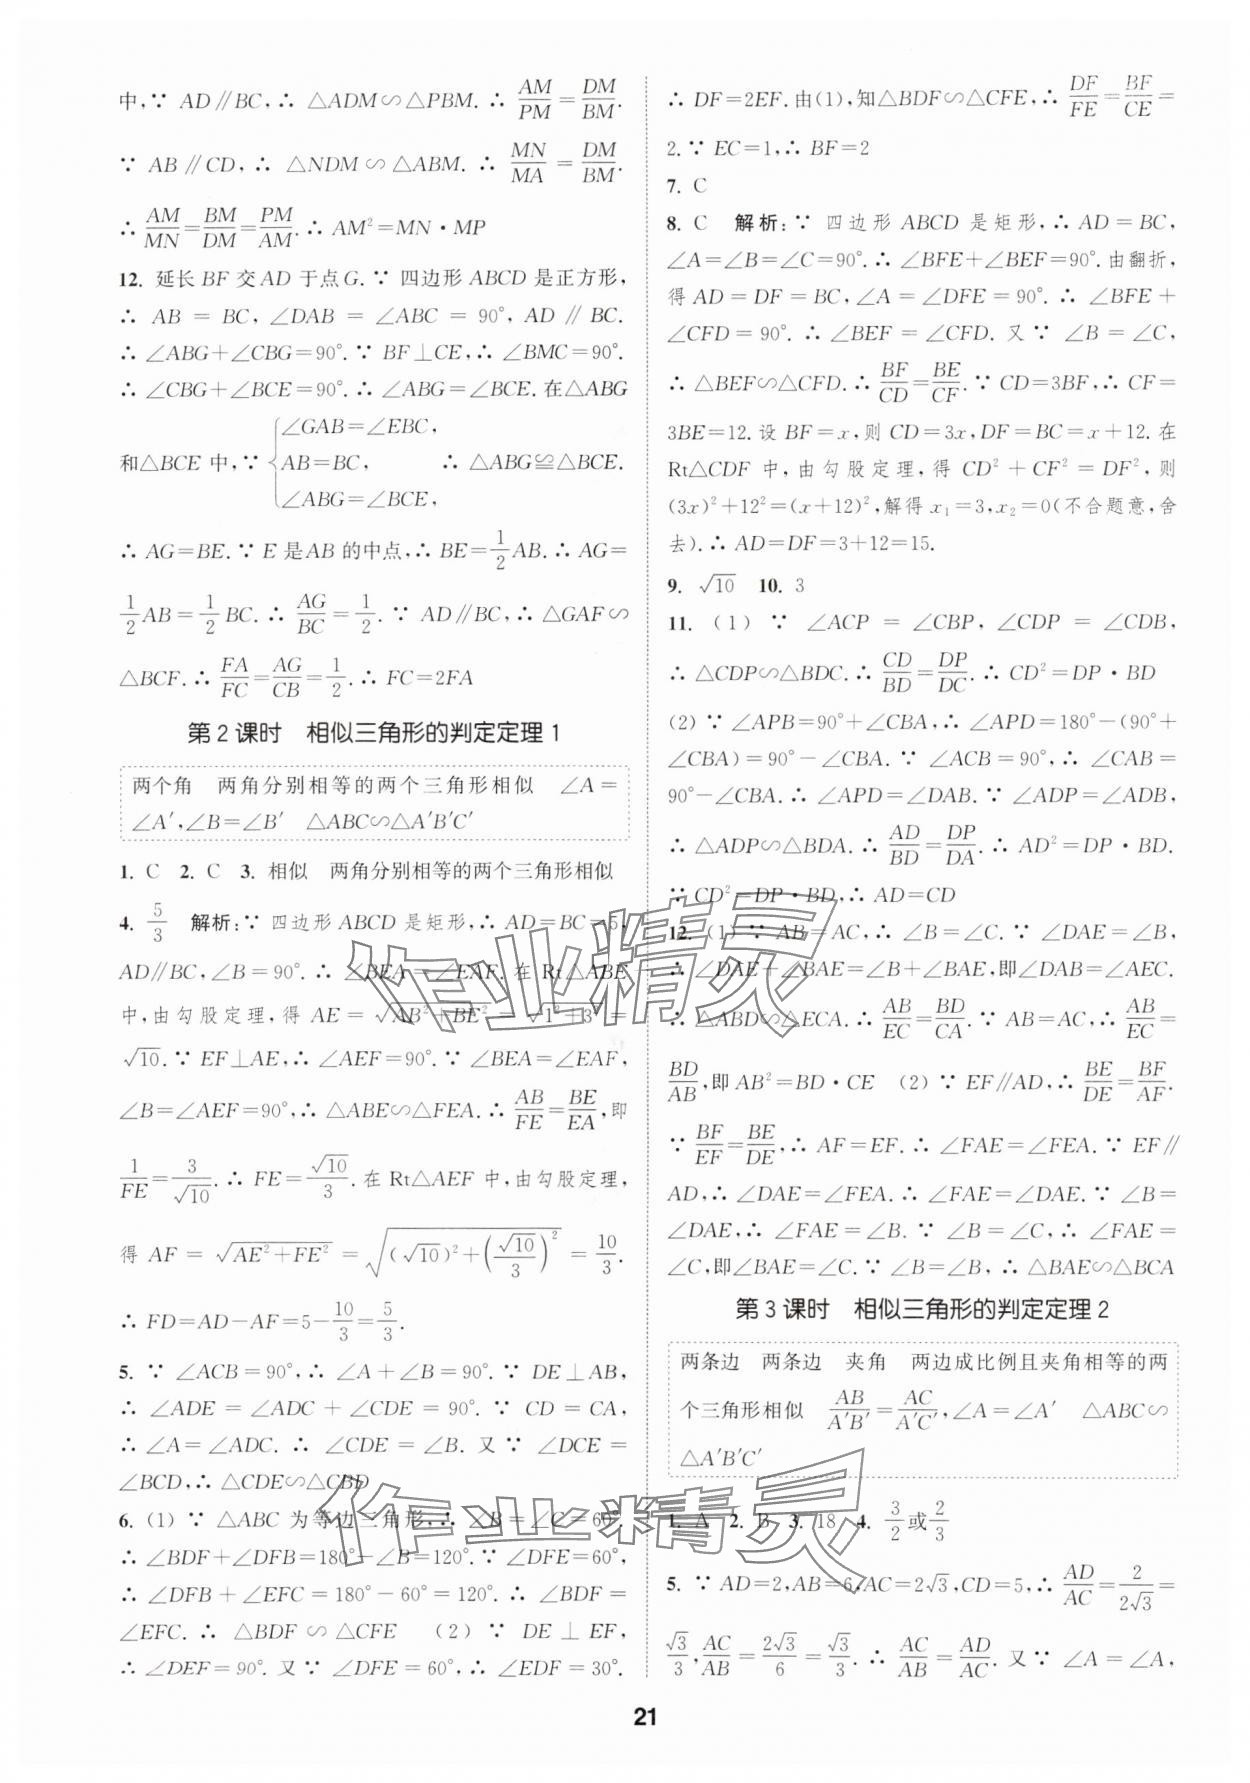 中,∵ AD∥BC,∴ △ADM∽△PBM.∴ AM/PM=DM/BM.
∵ AB∥CD,∴ △NDM∽△ABM.∴ MN/MA=DM/BM.
∴ AM/MN=BM/DM=PM/AM.∴ AM²=MN·MP
12. 延长BF交AD于点G.∵ 四边形ABCD是正方形,
∴ AB=BC,∠DAB=∠ABC=90°,AD∥BC.
∴ ∠ABG+∠CBG=90°.∵ BF⊥CE,∴ ∠BMC=90°.
∴ ∠CBG+∠BCE=90°.∴ ∠ABG=∠BCE.在△ABG
和△BCE中,∵ {∠GAB=∠EBC,
AB=BC,
∠ABG=∠BCE, ∴ △ABG≌△BCE.
∴ AG=BE.∵ E是AB的中点,∴ BE=1/2AB.∴ AG=
1/2AB=1/2BC.∴ AG/BC=1/2.∵ AD∥BC,∴ △GAF∽
△BCF.∴ FA/FC=AG/CB=1/2.∴ FC=2FA
第2课时 相似三角形的判定定理1
两个角 两角分别相等的两个三角形相似 ∠A=
∠A′,∠B=∠B′ △ABC∽△A′B′C′
1. C 2. C 3. 相似 两角分别相等的两个三角形相似
4. 5/3 解析:∵ 四边形ABCD是矩形,∴ AD=BC=5,
AD∥BC,∠B=90°.∴ ∠BEA=∠EAF.在Rt△ABE
中,由勾股定理,得 AE=√(AB²+BE²)=√(1²+3²)=
√10.∵ EF⊥AE,∴ ∠AEF=90°.∵ ∠BEA=∠EAF,
∠B=∠AEF=90°,∴ △ABE∽△FEA.∴ AB/FE=BE/EA,即
1/FE=3/√10.∴ FE=√10/3.在Rt△AEF中,由勾股定理,
得 AF=√(AE²+FE²)=√((√10)²+(√10/3)²)=10/3.
∴ FD=AD−AF=5−10/3=5/3.
5. ∵ ∠ACB=90°,∴ ∠A+∠B=90°.∵ DE⊥AB,
∴ ∠ADE=∠ADC+∠CDE=90°.∵ CD=CA,
∴ ∠A=∠ADC.∴ ∠CDE=∠B.又∵ ∠DCE=
∠BCD,∴ △CDE∽△CBD
6. (1) ∵ △ABC为等边三角形,∴ ∠B=∠C=60°.
∴ ∠BDF+∠DFB=180°−∠B=120°.∵ ∠DFE=60°,
∴ ∠DFB+∠EFC=180°−60°=120°.∴ ∠BDF=
∠EFC.∴ △BDF∽△CFE (2) ∵ DE⊥EF,
∴ ∠DEF=90°.又∵ ∠DFE=60°,∴ ∠EDF=30°.
∴ DF=2EF.由(1),知△BDF∽△CFE,∴ DF/FE=BF/CE=
2.∵ EC=1,∴ BF=2
7. C
8. C 解析:∵ 四边形ABCD是矩形,∴ AD=BC,
∠A=∠B=∠C=90°.∴ ∠BFE+∠BEF=90°.由翻折,
得 AD=DF=BC,∠A=∠DFE=90°.∴ ∠BFE+
∠CFD=90°.∴ ∠BEF=∠CFD.又∵ ∠B=∠C,
∴ △BEF∽△CFD.∴ BF/CD=BE/CF.∵ CD=3BF,∴ CF=
3BE=12.设BF=x,则CD=3x,DF=BC=x+12.在
Rt△CDF中,由勾股定理,得 CD²+CF²=DF²,则
(3x)²+12²=(x+12)²,解得x₁=3,x₂=0(不合题意,舍
去).∴ AD=DF=3+12=15.
9. √10 10. 3
11. (1) ∵ ∠ACP=∠CBP,∠CDP=∠CDB,
∴ △CDP∽△BDC.∴ CD/BD=DP/DC.∴ CD²=DP·BD
(2) ∵ ∠APB=90°+∠CBA,∴ ∠APD=180°−(90°+
∠CBA)=90°−∠CBA.∵ ∠ACB=90°,∴ ∠CAB=
90°−∠CBA.∴ ∠APD=∠DAB.∵ ∠ADP=∠ADB,
∴ △ADP∽△BDA.∴ AD/BD=DP/DA.∴ AD²=DP·BD.
∵ CD²=DP·BD,∴ AD=CD
12. (1) ∵ AB=AC,∴ ∠B=∠C.∵ ∠DAE=∠B,
∴ ∠DAE+∠BAE=∠B+∠BAE,即∠DAB=∠AEC.
∴ △ABD∽△ECA.∴ AB/EC=BD/CA.∵ AB=AC,∴ AB/EC=
BD/AB,即AB²=BD·CE (2) ∵ EF∥AD,∴ BE/DE=BF/AF.
∵ BF/EF=BE/DE,∴ AF=EF.∴ ∠FAE=∠FEA.∵ EF∥
AD,∴ ∠DAE=∠FEA.∴ ∠FAE=∠DAE.∵ ∠B=
∠DAE,∴ ∠FAE=∠B.∵ ∠B=∠C,∴ ∠FAE=
∠C,即∠BAE=∠C.∵ ∠B=∠B,∴ △BAE∽△BCA
第3课时 相似三角形的判定定理2
两条边 两条边 夹角 两边成比例且夹角相等的两
个三角形相似 AB/A′B′=AC/A′C′,∠A=∠A′ △ABC∽
△A′B′C′
1. A 2. B 3. 18 4. 3/2或2/3
5. ∵ AD=2,AB=6,AC=2√3,CD=5,∴ AD/AC=2/2√3=
√3/3,AC/AB=2√3/6=√3/3.∴ AC/AB=AD/AC.又∵ ∠A=∠A,
21
作业精灵
作业精灵